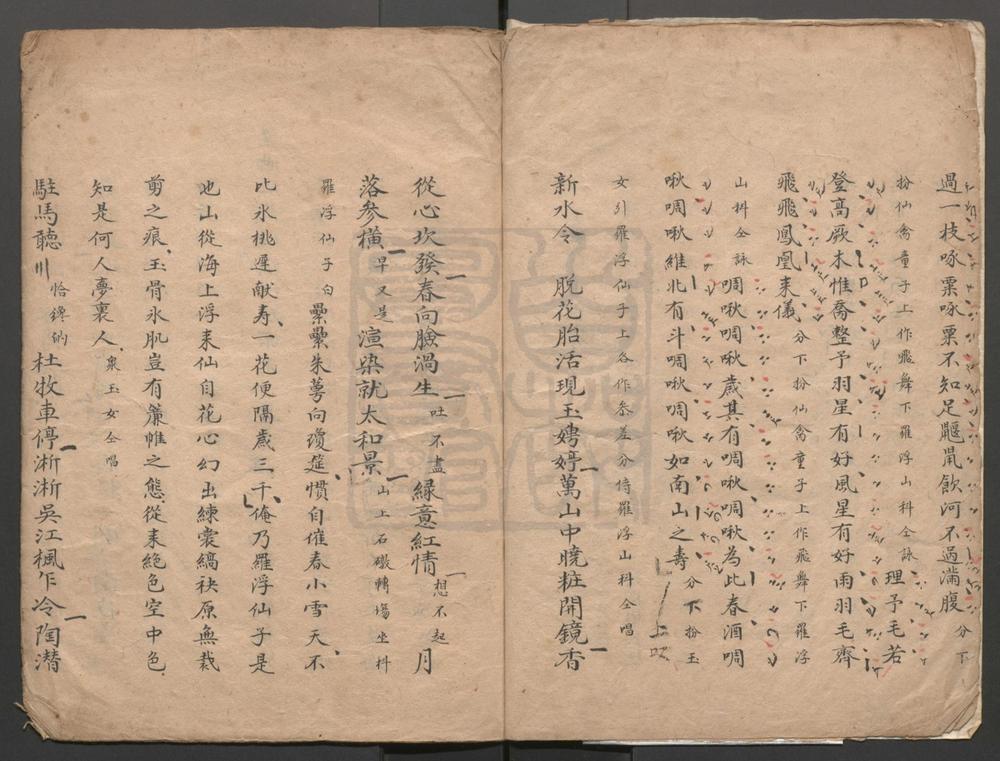 過一枝啄粟啄粟不知足鼴鼠飲河不過滿腹分下
扮仙禽童子上作飛舞下羅浮山科仝詠理予毛若
登高厥木惟喬整予羽星有好風星有好雨羽毛齊
飛飛鳳凰来儀分下扮仙禽童子上作飛舞下羅浮
山科仝詠啁啾啁啾歲其有啁啾啁啾為此春酒啁
啾啁啾維北有斗啁啾啁啾如南山之壽分下扮玉
女引羅浮仙子上各作叅差分侍羅浮山科仝唱
新水令脫花胎活現玉娉婷萬山中曉粧開鏡香
從心坎發春向臉渦生吐不盡緑意紅情想不起月
落參橫早又是渲染就太和景山上石礅轉塲坐科
羅浮仙子白纍纍朱萼向瓊筵慣自催春小雪天不
比氷桃遲献寿一花便隔歲三千俺乃羅浮仙子是
也山從海上浮来仙自花心幻出練裳縞袂原無裁
剪之痕玉骨氷肌豈有簾帷之態從来絕色空中色
知是何人夢裏人衆玉女仝唱
駐馬聽恰纔的杜牧車停淅淅吳江楓乍冷陶潜